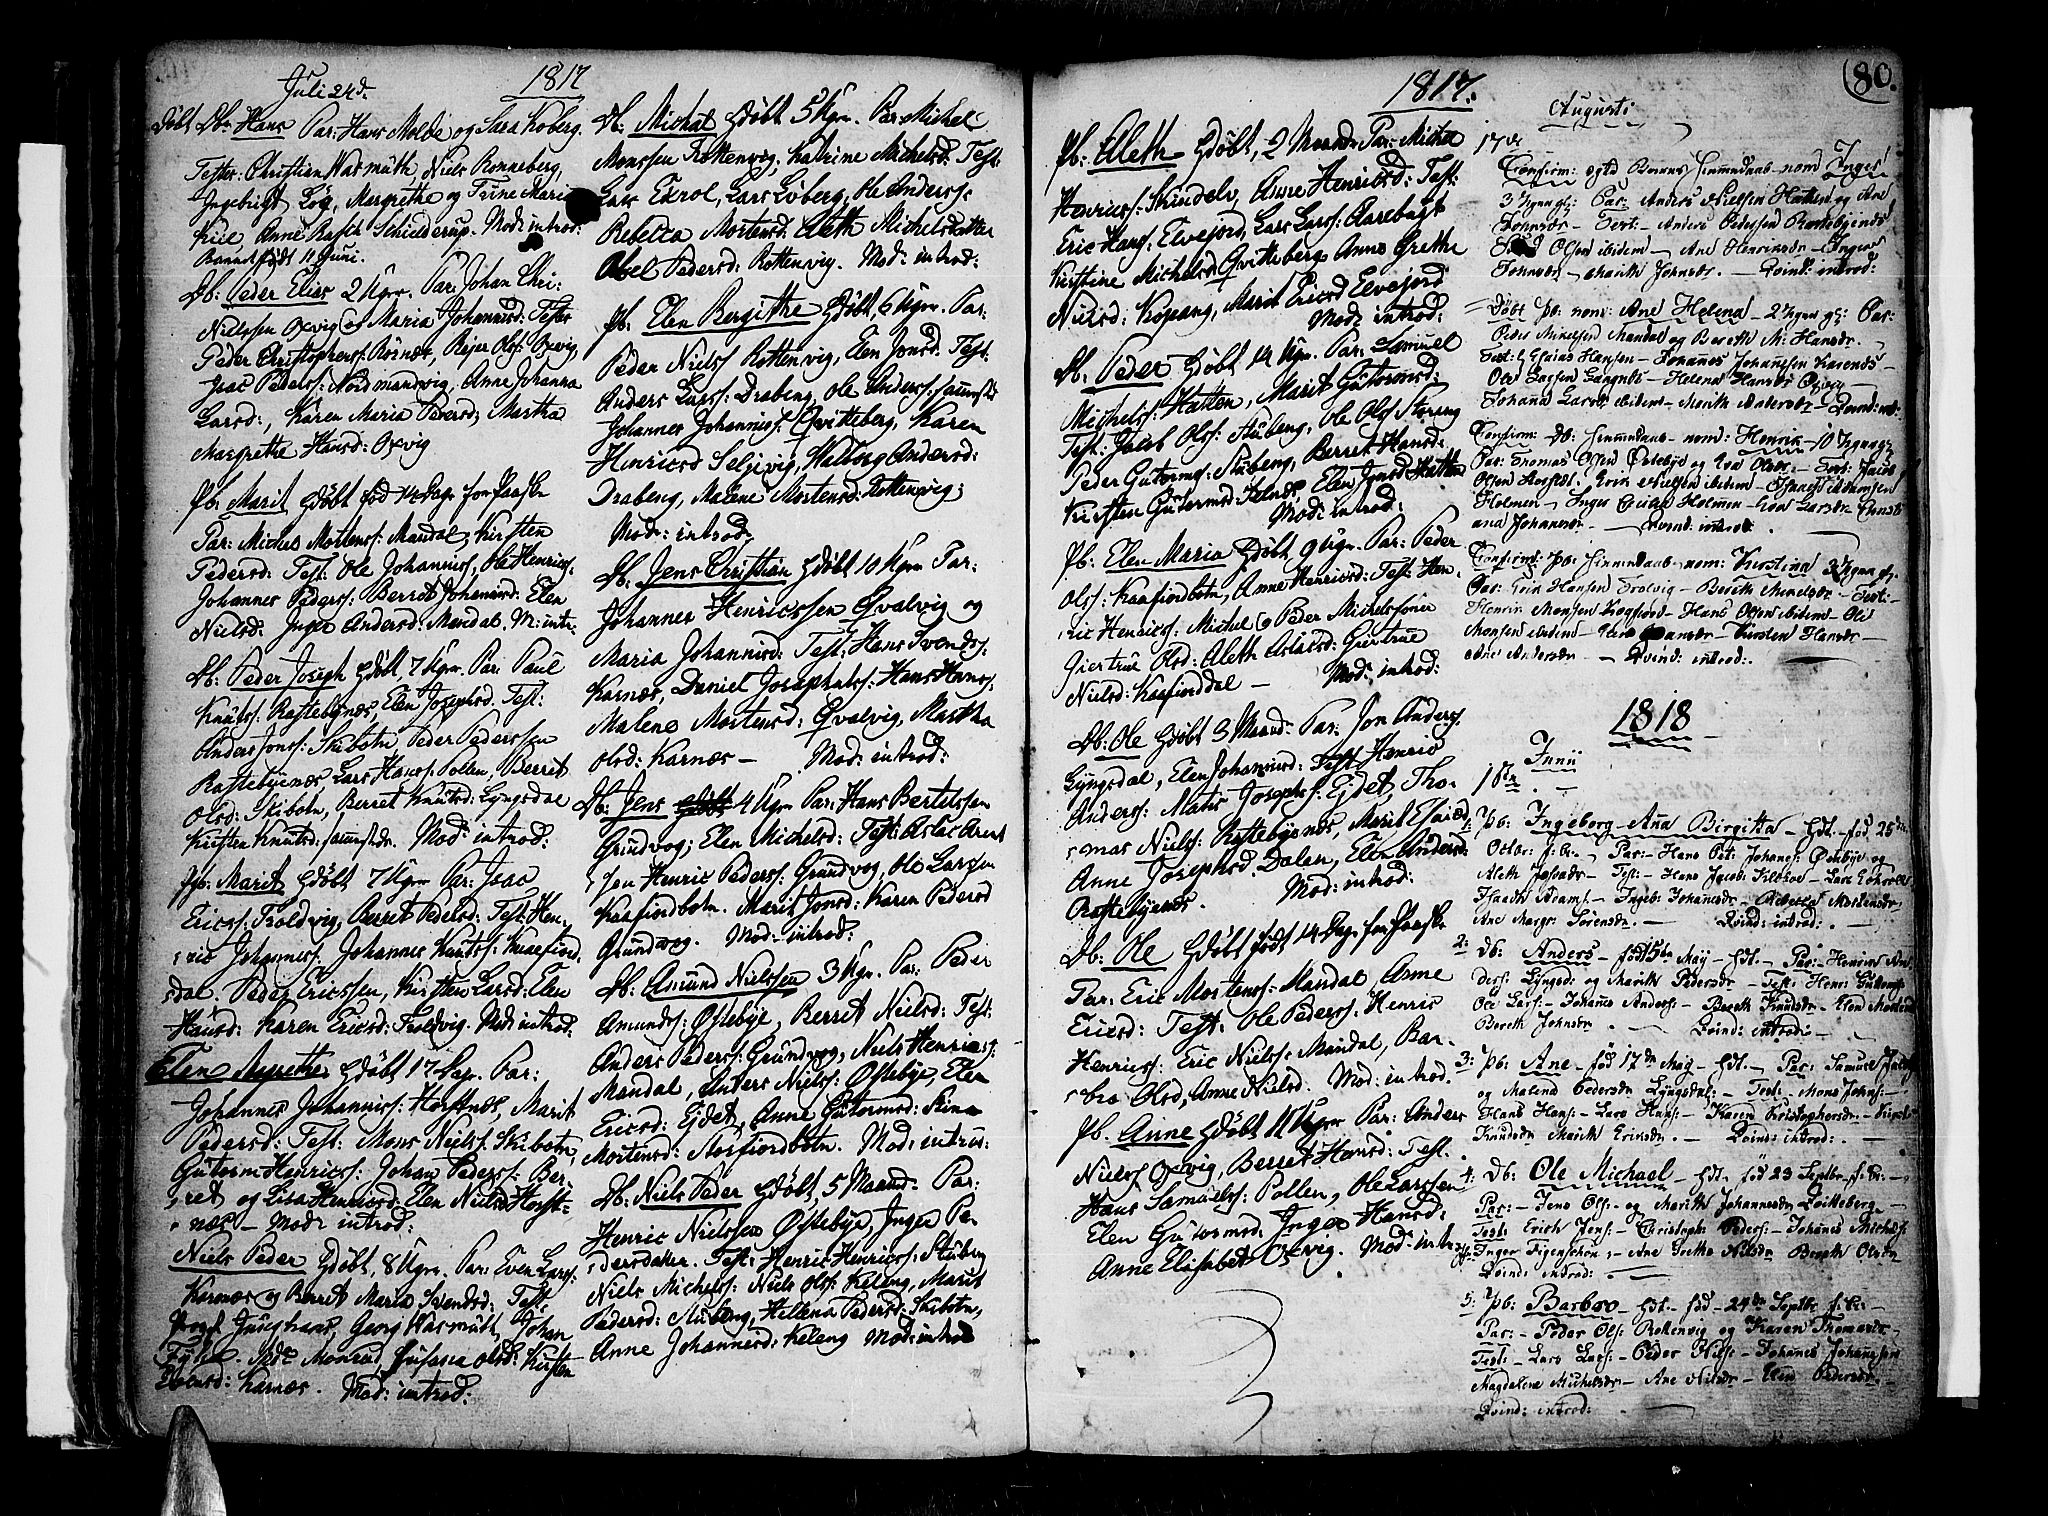 1817
Juli 24d.
Döbt Db: Hans Par: Hans Molde og Sara Koberg.
Testes: Christian Wasmuth, Niels Ronneberg,
Ingebrigt Lög, Margrethe og Trine Maria
Kiil Anne Basck Schielderup. Mod: introd:
Barnet födt 11 Juni.
Db: Peder Elias 2 Ugr. Par: Johan Chri:
Nielssen Oxvig og Maria Johannisd: Testes
Peder Christophers: Rösnæs, Rejer Ols: Oxvig
Isac Peders: Nordmandvig, Anne Johanna
Larsd:, Karen Maria Pedersd; Martha
Margrethe Hansd: Oxvig
Pb: Marit hdöbt föd 14 Dage for Paaske
Par: Michel Mortens: Mandal, Kirsten
Pedersd: Test: Ole Johannis:, Ole Henrics:
Johannes Peders: Berret Johannisd: Elen
Nielsd: Inger Andersd: Mandal. M: intr.
Db: Peder Joseph hdöbt 7 Ugr. Par: Paul
Knuts: Rastebynæs, Elen Josephsd: Test:
Anders Jons: Skibotn, Peder Pederssen
Rastebyenæs, Lars Hans: Pollen, Berret
Olsd: Skibotn, Berret Knutsd: Lyngsdal
Kirsten Knutsd: samestdr. Mod: introd:
Pb: Marit hdöbt 7 Ugr. Par: Isac
Erics: Troldvig, Berret Pedersd: Test: Hen-
ric Johannes: Johannes Knuts: Kaafiord-
dal. Peder Ericssen, Kirsten Larsd: Elen
Hansd: Karen Ericsd: Troldvig. Mod: introd.
Elen Margrethe hdöbt 17 Dage. Par:
Johannes Johannis: Horsnæs, Marit
Pedersd: Test: Mons Niels: Skibotn,
Gutorm Henrics: Johan Peders: Ber-
ret og Lisa Henricsd: Elen Nielsd: Horst-
næs – Mod: introd:
Niels Peder hdöbt, 8 Ugr. Par: Even Lars:
Karnæs og Berret Maria Svendsd: Test:
Junghans, Georg Wasmutt, Johan
Mdme Monrad, Susana Olsd: Kirsten
Svensd: Karnæs. Mod: introd:
Db: Michal hdöbt 5 Ugr. Par: Michel
Monssen Rottenvig, Katrine Michelsd: Test:
Lars Exrol, Lars Löberg, Ole Anders:
Rebecca Mortensd: Aleth Michelsdatter
Abel Pedersd: Rottenvig. Mod: introd:
Pb: Elen Bergithe hdöbt, 6 Ugr. Par:
Peder Niels: Rottenvig, Elen Jonsd: Test:
Anders Lars: Draberg, Ole Anders: samestd
Johannes Johannis: Qvitteberg, Karen
Henricsd Seljevig, Walborg Andersd:
Draberg, Malene Mortensd: Rottenvig;
Mod: introd.
Db: Jens Christian hdöbt 10 Ugr. Par:
Johannes Henricssen Qvalvig og
Maria Johannisd: Test: Hans Svends:
Karnæs, Daniel Josephats: Hans Hans:
Malene Mortensd: Qvalvig, Martha
Olsd: Karnæs – Mod: introd:
Db: Jens 4 Ugr. Par: Hans Bertelssen
Grundvog; Elen Michelsd: Test: Aslac Arent
sen Henric Peders: Grundvog, Ole Larsen
Kaafiordbotn. Marit Jonsd: Karen Pedersd
Grundvog. Mod: introd:
Db: Amund Nielssen 3 Ugr. Par: Peder
Amunds: Östebye, Berret Nielsd: Test:
Anders Peders: Grundvog, Niels Henrics:
Mandal, Anders Niels: Östebye, Elen
Ericsd: Ejdet, Anne Gutormsd: Stina
Mortensd: Storfiordbotn. Mod: introd:
Db: Niels Peder hdöbt, 5 Maand. Par:
Henric Nielssen Östebye, Inger Pe-
dersdater. Test: Henric Henrics: Stuberg
Niels Michels: Niels Ols: Keleng, Marit
Pedersd: Stuberg, Hellena Pedersd: Skibotn,
Anne Johannesd: Keleng Mod: introd
80.
1817.
Pb: Aleth hdöbt, 2 Maand: Par: Michel
Henrics: Skindelv, Anne Henricsd: Test:
Eric Hans: Elvejord, Lars Lars: Aarebugt
Kirstine Michelsd: Qvitteberg Anne Grethe
Nielsd: Kopang, Marit Ericsd Elvejord
Mod: introd:
Db: Peder hdöbt 14 Ugr. Par: Samuel
Michels: Hatten, Marit Gutormsd:
Test: Jacob Ols: Stuberg, Ole Ols:
Peder Gutorms: Stuberg, Berret Hansd:
Kirsten Gutormsd: Elen Jonsd: Hatten
Mod: introd:
Pb: Elen Maria hdöbt 9 Ugr. Par: Peder
Ols: Kaafiordbotn, Anne Henricsd: Test: Hen-
ric Henrics: Michel og Peder Michelsöner
Giertrue Olsd: Aleth Aslacsd: Giertrue
Nielsd: Kaafiorddal – Mod: introd:
Db: Ole hdöbt 3 Maand: Par: Jon Anders:
Lyngsdal, Elen Johannisd: Test: Henric
Anders: Matis Josephs: Ejdet, Tho-
mas Niels: Rastebyenæs, Marit Esaiæd:
Anne Josephsd. Dalen, Elen Andersd:
Rastebyenæs. Mod: introd:
Db: Ole hdöbt födt 14 Dage for Paaske
Par: Eric Mortens: Mandal Anne
Ericsd: Test: Ole Peders: Henric
Henrics: Eric Niels: Mandal, Bar-
bra Olsd, Anne Nielsd: Mod: introd.
Pb: Anne hdöbt 11 Ugr. Par: Anders
Niels: Oxvig, Berret Hansd: Test.
Hans Samuels: Pollen, Ole Larssen
Elen Gutormsd: Inger Hansd:
Anne Elisabet Oxvig. Mod: introd
Augusti
17de
Confirm: Pb: hiemmedaab – nom: Inger
3 Ugr gl: Par: Anders Nielsen Hatten og An
Johnsdr – Test: – Anders Pedersen Rastebyenæs
Olsen ibidem – Ane Henriksdr – Inger
Johnsdr – Marith Johnsdr. – Qvind: introd:
Döbt Pb: nom: Ane Helena – 2 Ugr gl: Par:
Peder Mikelsen Mandal og Bereth M: Hansdr. –
Test: Esaias Hansen – Johannes Johannesen Karenæs –
Ole Larsen Langnæs – Helena Hansdr Oxvig –
Johana Larsdr ibidem – Marith Andersdr – Qvind: int:
Confirm: Db: hiemmedaab – nom: Henrik – 10 Ugr gl:
Par: Thomas Olsen Östebye og Eva Olsdr: – Test: Jacob
Olsen Horsnæs. Erik Nielsen ibidem – Isaach Adamsen
Holmen – Inger Holmen – Eva Larsdr Christi
ana Johansdr. – Qvind: introd:
Confirm: Pb: hiemmedaab – nom: Kirstina 3 Ugr gl:
Par: Erik Hansen Trolvig – Bereth Monsdr – Test:
Henrik Monsen Kaafjord – Hans Olsen ibidem – Ole
Monsen ibidem – Hansdr – Kirsten Hansdr –
Ane Andersdr – Qvind: introd:.
1818
Junii
1. Pb: Ingeborg Ana Birgitta – hdt. – föd 25de
Octbr: f: år: – Par: – Hans Pet: Johans: Östebye og
Aleth Josasdr – Test: – Hans Jacob: Kilboe – Lars Exkroll
Isaach Adams: – Ingeb: Johansdr – Rebecca Mortensdr
Ane Margr: Sörensdr. – Qvind: introd: . –
2: Db: Anders – föd 15de May – hdt. – Par: Henrik An
ders: Lyngsd: og Marith Pedersdr – Test: Henr: Guttorms:
Ole Lars: – Johannes Anders: – Bereth Knudsdr – Elen Mortensd
Bereth Johnsdr . – Qvind: introd: –
3: Pb: Ane – föd 17de May – hdt. – Par: Samuel
og Malena Pedersdr Lyngsdal: – Test: Mons Johns: –
Hans Hans: – Lars Hans: – Karen Christophersdr –
Knudsdr Marith Eriksdr. – Qvind: introd: . –
4: Db: Ole Michael – hdt. föd 23 Septbr. f: år: –
Par: – Jens Ols: – og Marith Johannesdr Qvitteberg –
Test: Erich Jens: – Christoph: Peders: – Johannes Michels:
Inger Figenschou: – Ane Gretha Nilsdr Bereth Olsdr
Qvind: introd: .
5: Pb: Barbro – hdt. – föd – 24de Septbr f: år: –
Par: – Peder Ols: Rottenvig og Karen Thomasdr
Test: – Lars Lars: – Peder Niels: – Johannes Johannsen
Magdalena Michelsdr – Ane Nilsdr – Elen Pedersdr. –
Qvind: introd: .